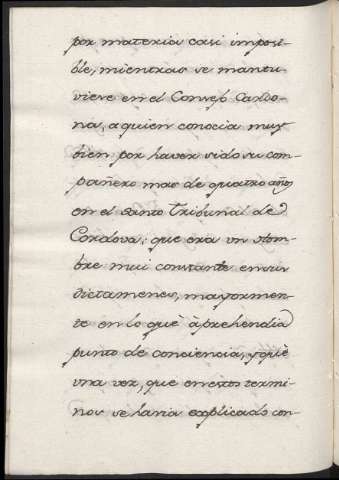 por materia casi imposi-
ble, mientras se mantu-
viese en el Consejo Cardo-
na, a quien conocia muy
bien por haver sido su com-
pañero mas de quatro años
en el Santo Tribunal de
Cordova; que era un Hom-
bre mui constante en sus
dictamenes, mayormen-
te en lo què àprehendia
punto de conciencia, y què
una vez, que en estos termi-
nos se havia explicado con-